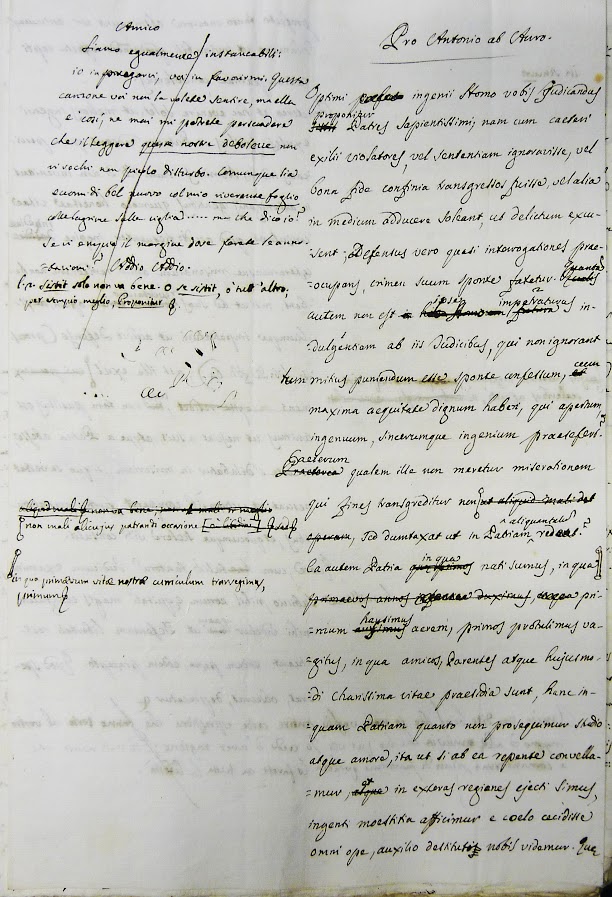 Amico
Siamo egualmente instancabili:
io in pregarvi, voi in favorirmi. Questa
canzone voi non la volete sentire, ma ella
è così; ne mai mi potrete persuadere
che il leggere queste nostre debolezze non
vi rechi non picolo disturbo. Comunque sia
eccomi di bel nuovo col mio riverente foglio
colle lagrime sulle ciglia ..... ma che dico io?
Se vi è niun il margine dove farete le anno-
=tazioni? Addio Addio.
sistit solo non va bene. O se sistit, ò tutt'altro,
per esempio meglio, proponitur
aliquid mali non va bene, meglio
non mali alicujus patrandi occasione
in quo primævum vitæ nostræ curriculum transegimus,
primum
Pro Antonio ab Auro.
Optimi ingenii Homo vobis Judicandus
proponitur
Patres Sapientissimi; nam cum caeteri
exilii violatores, vel sententiam ignoravisse, vel
bona fide confinia transgressos fuisse, vel alia
in medium adducere soleant, ut delictum excu-
sent; Defensus vero quasi interrogationes prae-
=occupans, crimen suum sponte fatetur. Quanto
autem non est ipse impetraturus in-
dulgentiam ab iis Judicibus, qui non ignorant
tum mitius puniendum esse sponte confessum,
maxima aequitate dignum haberi, qui apertum,
ingenuum, sincerumque ingenium praesefert.
Caeterum
Praeterea qualem ille non meretur miserationem
qui fines transgreditur non ut aliquid mali det
operam, sed dumtaxat ut in Patriam aliquantulum redeat?
Ea autem Patria in qua nati sumus, in qua
primaevos annos duximus, pri-
=mum hausimus aerem, primos protulimus va-
=gitus, in qua amicos, Parentes atque hujusmo-
=di charissima vitae praesidia sunt, hanc in-
=quam Patriam quanto non prosequimur studio
atque amore, ita ut si ab ea repente convella-
=mur, et in exteras regiones ejecti simus,
ingenti moestitia afficimur e coelo cecidisse
omni ope, auxilio destituti nobis videmur. Quae